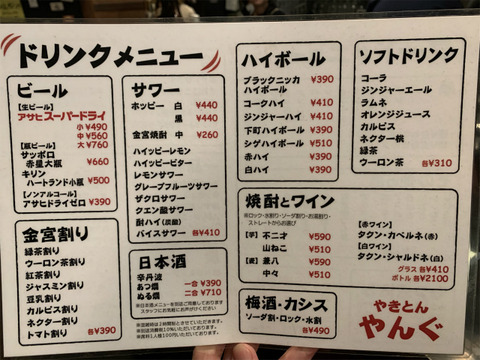 ドリンクメニュー
ビール
【生ビール】
アサヒスーパードライ
小 ¥490
中 ¥560
大 ¥760
【瓶ビール】
サッポロ
赤星大瓶 ¥660
キリン
ハートランド小瓶 ¥500
【ノンアルコール】
アサヒドライゼロ ¥390
金宮割り
緑茶割り
ウーロン茶割り
紅茶割り
ジャスミン割り
豆乳割り
カルピス割り
ネクター割り
トマト割り 各¥390
サワー
ホッピー 白 ¥440
黒 ¥440
金宮焼酎 中 ¥260
ハイッピーレモン
ハイッピービター
レモンサワー
グレープフルーツサワー
ザクロサワー
クエン酸サワー
酎ハイ(炭酸)
バイスサワー 各¥410
日本酒
辛丹波
あつ燗 一合 ¥390
ぬる燗 二合 ¥710
※日本酒メニューを別途ご用意しております
スタッフにお気軽にお声がけください
※混雑時は2時間制とさせていただきます。
※別途消費税10%いただいております。
※席料1人様100円いただいております。
ハイボール
ブラックニッカ ¥390
ハイボール
コークハイ ¥410
ジンジャーハイ ¥410
下町ハイボール ¥390
シゲハイボール ¥510
赤ハイ ¥390
白ハイ ¥390
ソフトドリンク
コーラ
ジンジャーエール
ラムネ
オレンジジュース
カルピス
ネクター桃
緑茶
ウーロン茶 各¥310
焼酎とワイン
※ロック・水割り・ソーダ割り・お湯割り・
ストレートからお選び
【芋】 不二才 ¥590
山ねこ ¥510
【麦】 兼八 ¥590
中々 ¥510
【赤ワイン】
タクン・カベルネ(赤)
【白ワイン】
タクン・シャルドネ(白)
グラス 各¥410
ボトル 各¥2100
梅酒・カシス
ソーダ割・ロック・水割
各¥490
やきとん
やんぐ